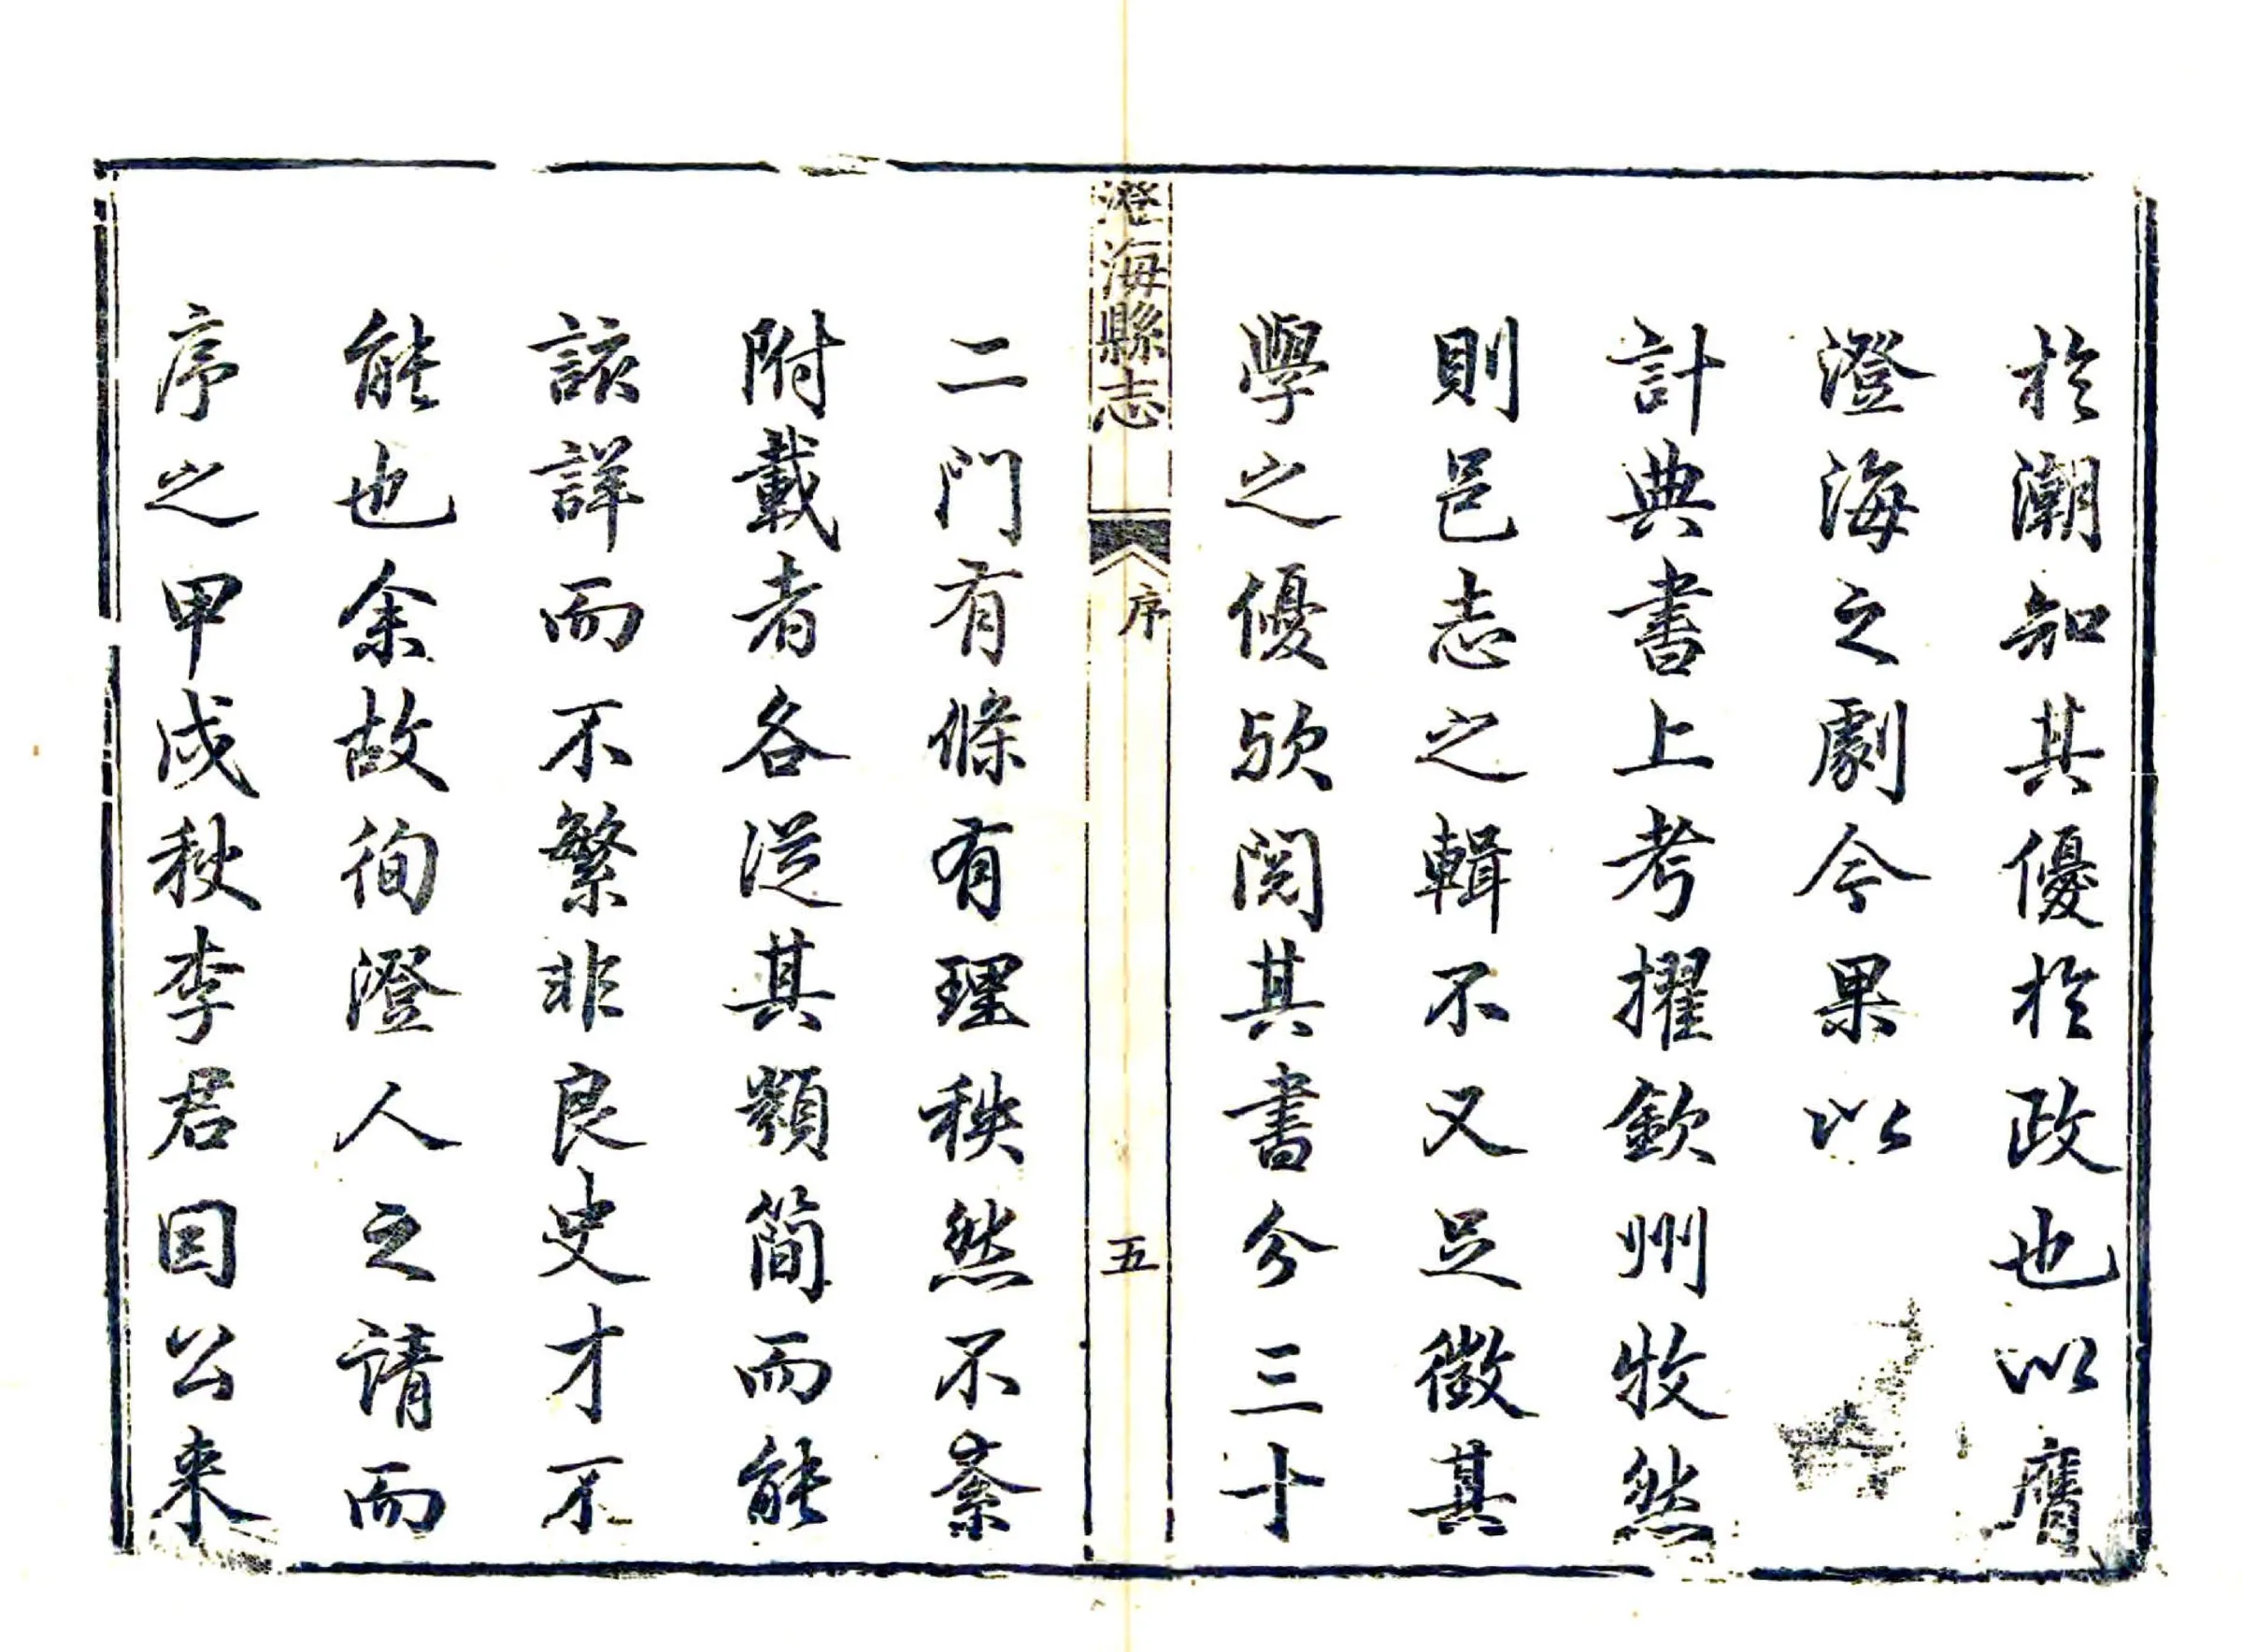 於潮知其優於政也以膺
澄海之劇今果以
計典書上考擢欽州牧然
則邑志之輯不又足徵其
學之優歟閱其書分三十
澄海縣志
序
五
二門有條有理秩然不紊
附載者各從其類簡而能
該詳而不繁非良史才不
能也余故徇澄人之請而
序之甲戌秋李君因公来